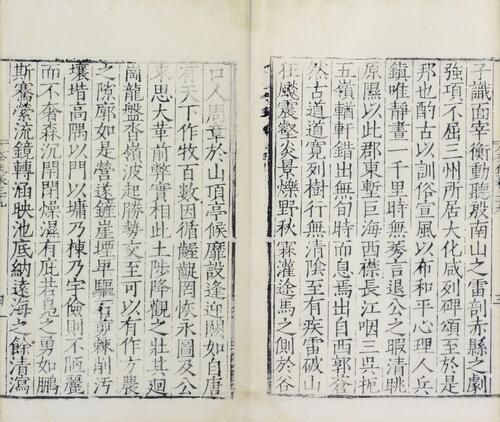 子識面宰衡動聽殷南山之雷剖赤縣之劇
強項不屈三州所居大化咸列碑頌至於是
邦也酌古以訓俗宣風以布和平心理人兵
鎮唯靜畫一千里時無莠言退公之暇清眺
原隰以此郡東塹巨海西襟長江咽三吳扼
五嶺輶軒錯出無旬時而息焉出自西郭蒼
然古道道寛列樹行無清陰至有疾雷破山
狂飈震壑炎景爍野秋霖灌途馬逼側於谷
口人周章於山頂亭候靡設逢迎闕如自唐
有天下作牧百數因循齷齪罔恢永圖及公
來思大革前弊實相此土陟降觀之壯其迴
崗龍盤沓嶺波起勝勢交至可以有作方農
之隙廓如是營遂鏟崖堙卑驅石剪棘削汚
壤堦高隅以門以墉乃棟乃宇儉則不陋麗
而不奢森沉閈閎燥濕有庇若鼇之勇如鵬
斯騫縈流鏡轉涵映池底納遠海之餘清瀉